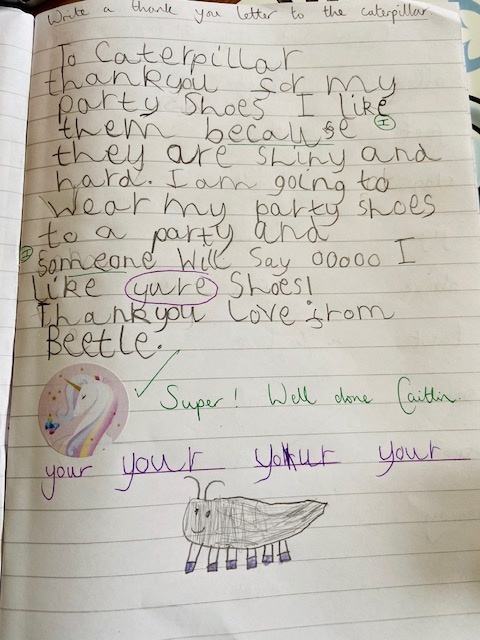 Write a thank you letter to the caterpillar.
To Caterpillar
thankyou for my
party shoes I like
them because I
they are shiny and
hard. I am going to
wear my party shoes
to a party and
I someone will say ooooo I
like yure shoes!
Thankyou love from
Beetle.
Super! Well done Caitlin.
your your your your